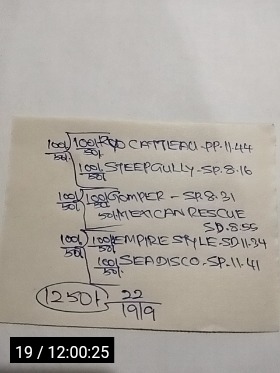 100/ 50/ 100/ 50/ RYO CATTEAU-PP.11.44
100/ 50/ STEEPGULLY-SP.8.16
100/ 50/ 100/ 50/ GOMPER - SP.8.31
50/ MEXICAN RESCUE
SD.8.55
100/ 50/ 100/ 50/ EMPIRE STYLE-SD.11.34
100/ 50/ SEADISCO-SP.11.41
1250/ 22
19/9
19 / 12:00:25